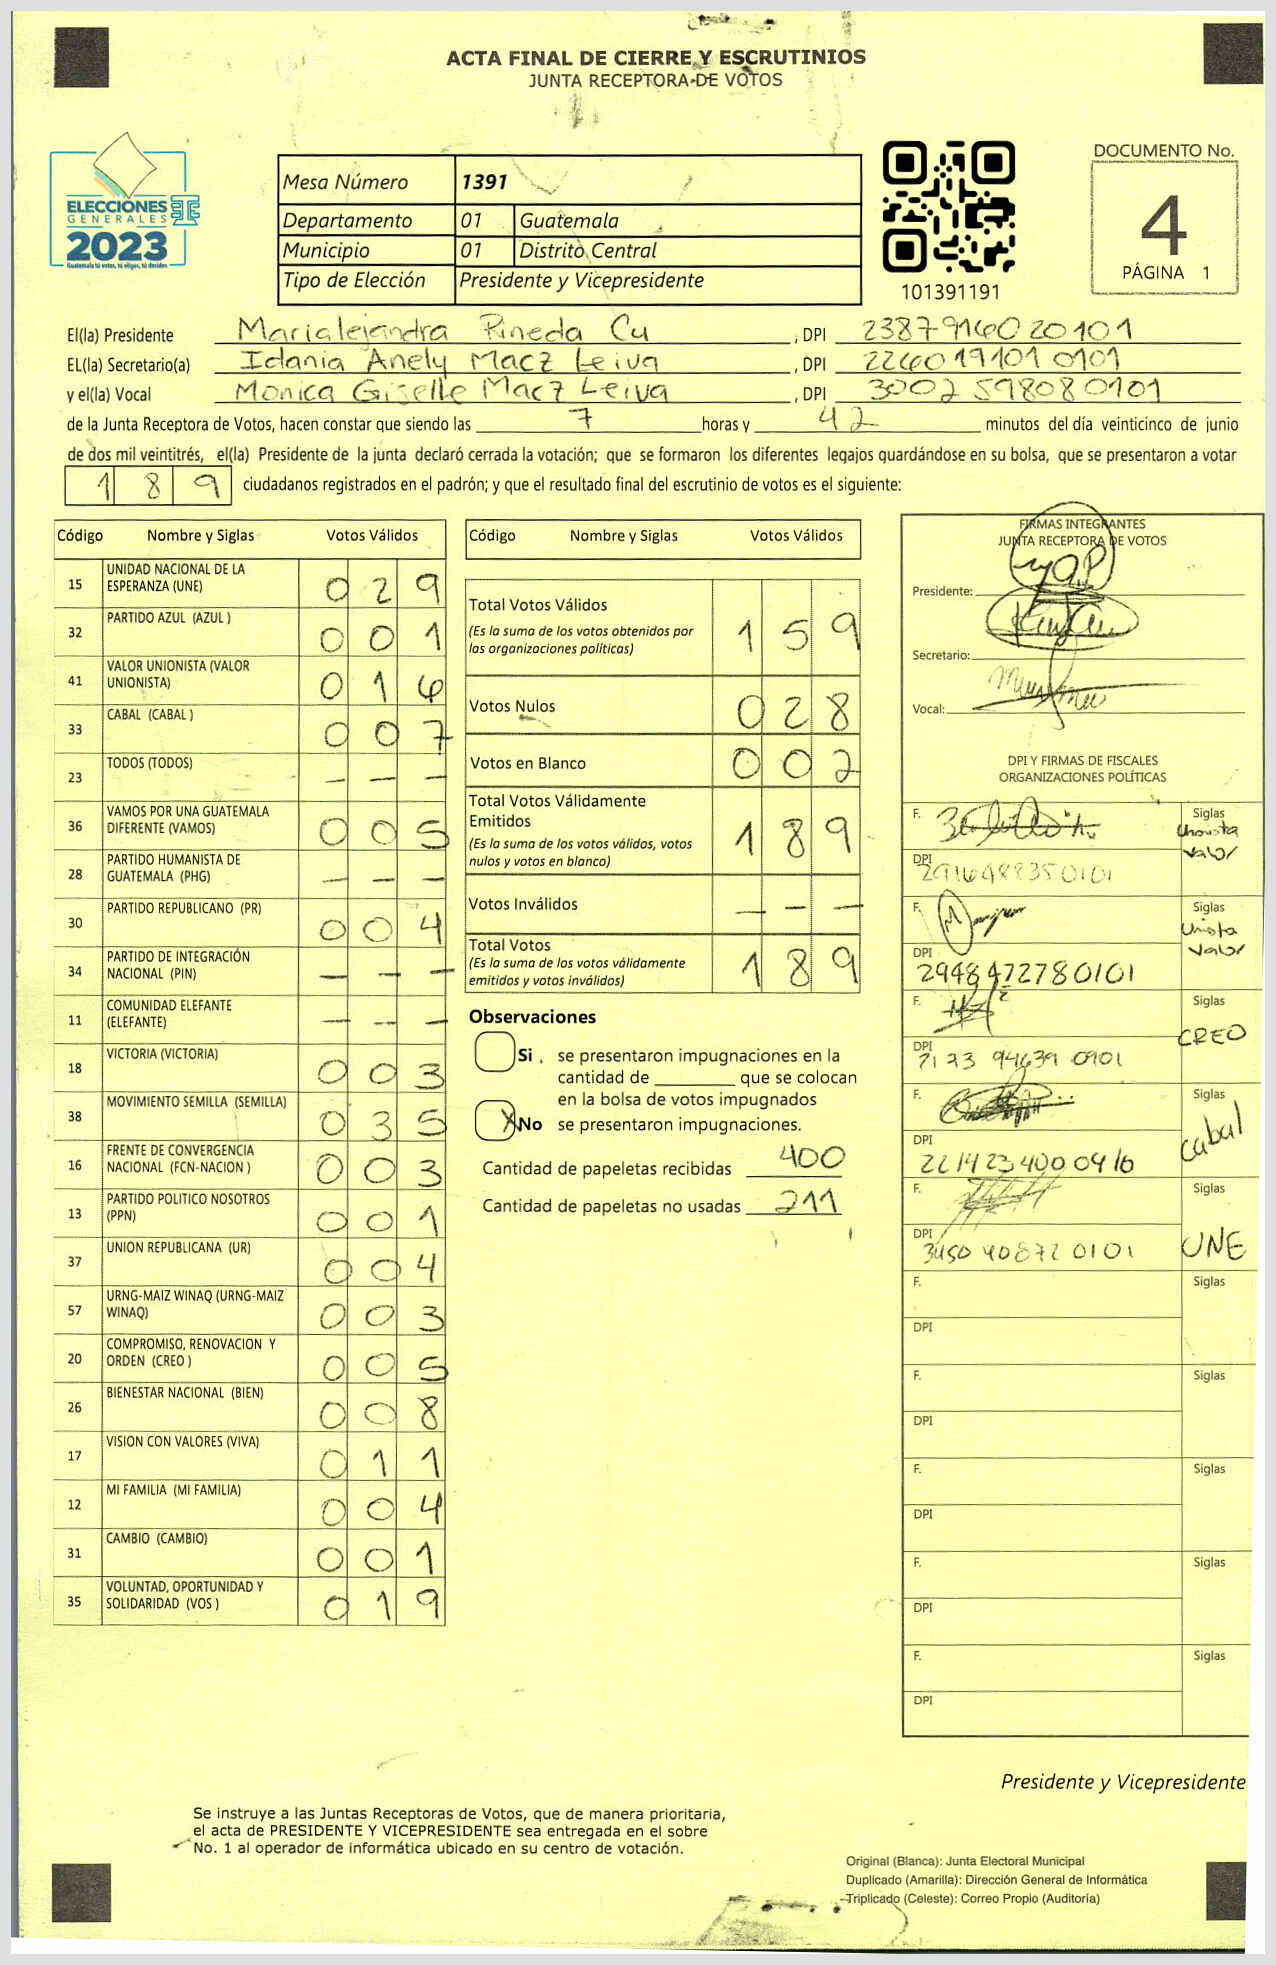 ACTA FINAL DE CIERRE Y ESCRUTINIOS
JUNTA RECEPTORA DE VOTOS
ELECCIONES
GENERALES
2023
Guatemala tú votas, tú eliges, tú decides
Mesa Número 1391
Departamento 01 Guatemala
Municipio 01 Distrito Central
Tipo de Elección Presidente y Vicepresidente
101391191
DOCUMENTO No.
4
PÁGINA 1
El(la) Presidente Marialejandra Pineda Cu, DPI 2387916020101
EL(la) Secretario(a) Idania Anely Macz Leiva, DPI 2260191010101
y el(la) Vocal Monica Giselle Macz Leiva, DPI 3002598080101
de la Junta Receptora de Votos, hacen constar que siendo las 7 horas y 42 minutos del día veinticinco de junio
de dos mil veintitrés, el(la) Presidente de la junta declaró cerrada la votación; que se formaron los diferentes legajos guardándose en su bolsa, que se presentaron a votar
189 ciudadanos registrados en el padrón; y que el resultado final del escrutinio de votos es el siguiente:
Código Nombre y Siglas Votos Válidos
15 UNIDAD NACIONAL DE LA
ESPERANZA (UNE) 029
32 PARTIDO AZUL (AZUL ) 001
41 VALOR UNIONISTA (VALOR
UNIONISTA) 016
33 CABAL (CABAL ) 007
23 TODOS (TODOS) - - -
36 VAMOS POR UNA GUATEMALA
DIFERENTE (VAMOS) 005
28 PARTIDO HUMANISTA DE
GUATEMALA (PHG) - - -
30 PARTIDO REPUBLICANO (PR) 004
34 PARTIDO DE INTEGRACIÓN
NACIONAL (PIN) - - -
11 COMUNIDAD ELEFANTE
(ELEFANTE) - - -
18 VICTORIA (VICTORIA) 003
38 MOVIMIENTO SEMILLA (SEMILLA) 035
16 FRENTE DE CONVERGENCIA
NACIONAL (FCN-NACION ) 003
13 PARTIDO POLITICO NOSOTROS
(PPN) 001
37 UNION REPUBLICANA (UR) 004
57 URNG-MAIZ WINAQ (URNG-MAIZ
WINAQ) 003
20 COMPROMISO, RENOVACION Y
ORDEN (CREO ) 005
26 BIENESTAR NACIONAL (BIEN) 008
17 VISION CON VALORES (VIVA) 011
12 MI FAMILIA (MI FAMILIA) 004
31 CAMBIO (CAMBIO) 001
35 VOLUNTAD, OPORTUNIDAD Y
SOLIDARIDAD (VOS ) 019
Código Nombre y Siglas Votos Válidos
Total Votos Válidos 159
(Es la suma de los votos obtenidos por
las organizaciones políticas)
Votos Nulos 028
Votos en Blanco 002
Total Votos Válidamente
Emitidos 189
(Es la suma de los votos válidos, votos
nulos y votos en blanco)
Votos Inválidos - - -
Total Votos 189
(Es la suma de los votos válidamente
emitidos y votos inválidos)
Observaciones
Si , se presentaron impugnaciones en la
cantidad de ________ que se colocan
en la bolsa de votos impugnados
X No se presentaron impugnaciones.
Cantidad de papeletas recibidas 400
Cantidad de papeletas no usadas 211
FIRMAS INTEGRANTES
JUNTA RECEPTORA DE VOTOS
Presidente:
Secretario:
Vocal:
DPI Y FIRMAS DE FISCALES
ORGANIZACIONES POLÍTICAS
F. Siglas
Valor
DPI
2916488350101
F. Siglas
Valor
DPI
2948472780101
F. Siglas
CREO
DPI
F. Siglas
Cabal
DPI
2214234000416
F. Siglas
UNE
DPI
3450408720101
F. Siglas
DPI
F. Siglas
DPI
F. Siglas
DPI
F. Siglas
DPI
F. Siglas
DPI
Presidente y Vicepresidente
Se instruye a las Juntas Receptoras de Votos, que de manera prioritaria,
el acta de PRESIDENTE Y VICEPRESIDENTE sea entregada en el sobre
No. 1 al operador de informática ubicado en su centro de votación.
Original (Blanca): Junta Electoral Municipal
Duplicado (Amarilla): Dirección General de Informática
Triplicado (Celeste): Correo Propio (Auditoría)